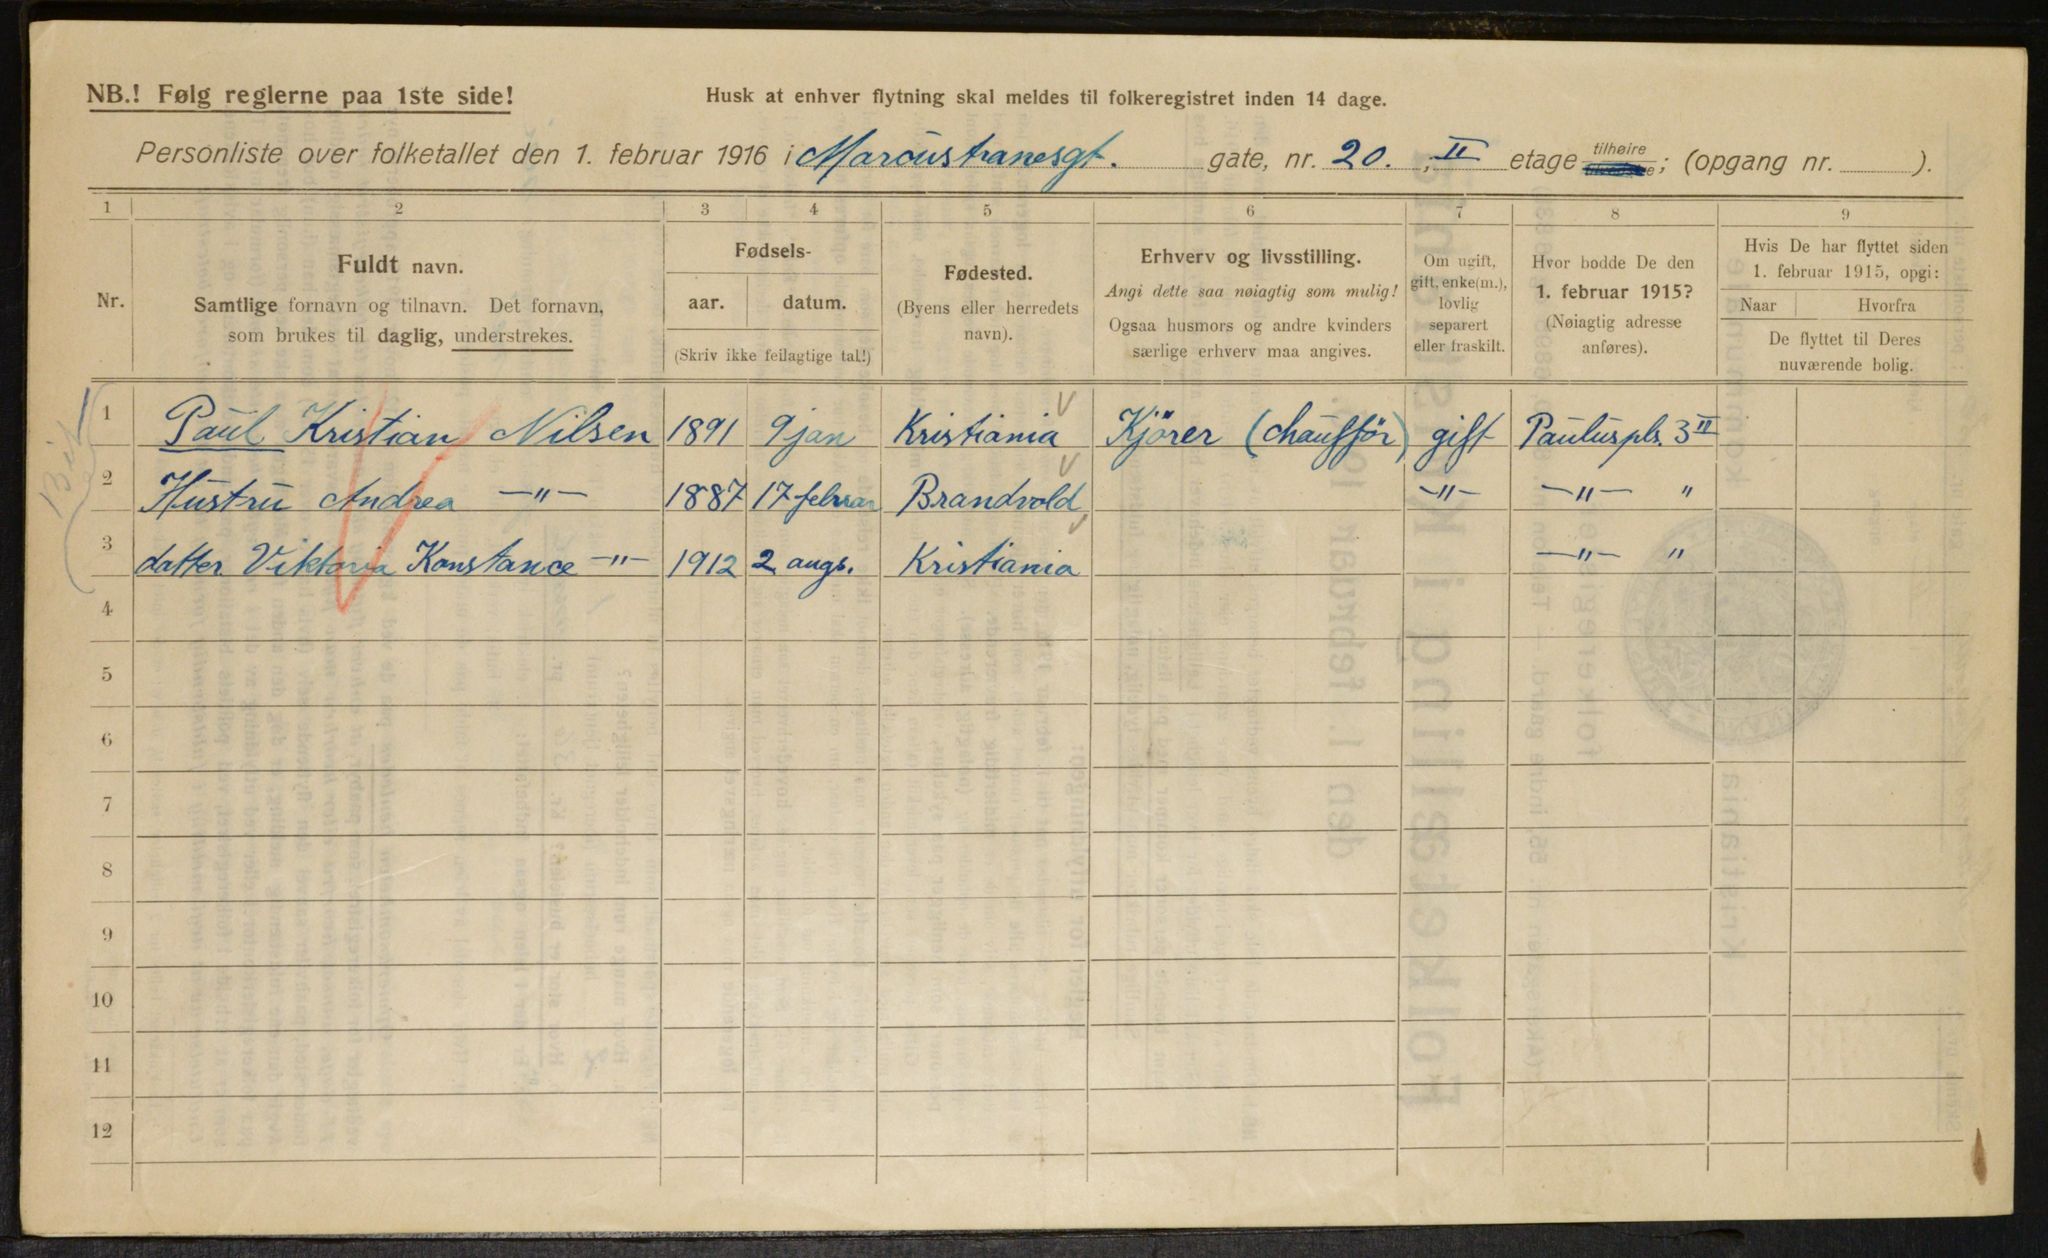 NB.! Følg reglerne paa 1ste side!
Husk at enhver flytning skal meldes til folkeregistret inden 14 dage.
Personliste over folketallet den 1. februar 1916 i Marcustranesgt. gate, nr. 20., II etage tilhøire; (opgang nr. ).
1 2 3 4 5 6 7 8 9
Nr.
Fuldt navn.
Samtlige fornavn og tilnavn. Det fornavn,
som brukes til daglig, understrekes.
Fødsels-
aar. datum.
(Skriv ikke feilagtige tal!)
Fødested.
(Byens eller herredets
navn).
Erhverv og livsstilling.
Angi dette saa nøiagtig som mulig!
Ogsaa husmors og andre kvinders
særlige erhverv maa angives.
Om ugift,
gift, enke(m.),
lovlig
separert
eller fraskilt.
Hvor bodde De den
1. februar 1915?
(Nøiagtig adresse
anføres).
Hvis De har flyttet siden
1. februar 1915, opgi:
Naar Hvorfra
De flyttet til Deres
nuværende bolig.
1 Paul Kristian Nilsen 1891 9 jan Kristiania Kjörer (chaufför) gift Pauluspls. 3 II
2 Hustru Andrea —"— 1887 17 februar Brandvold —"— —"— "
3 datter Viktoria Konstance —"— 1912 2 augs. Kristiania —"— "
4
5
6
7
8
9
10
11
12